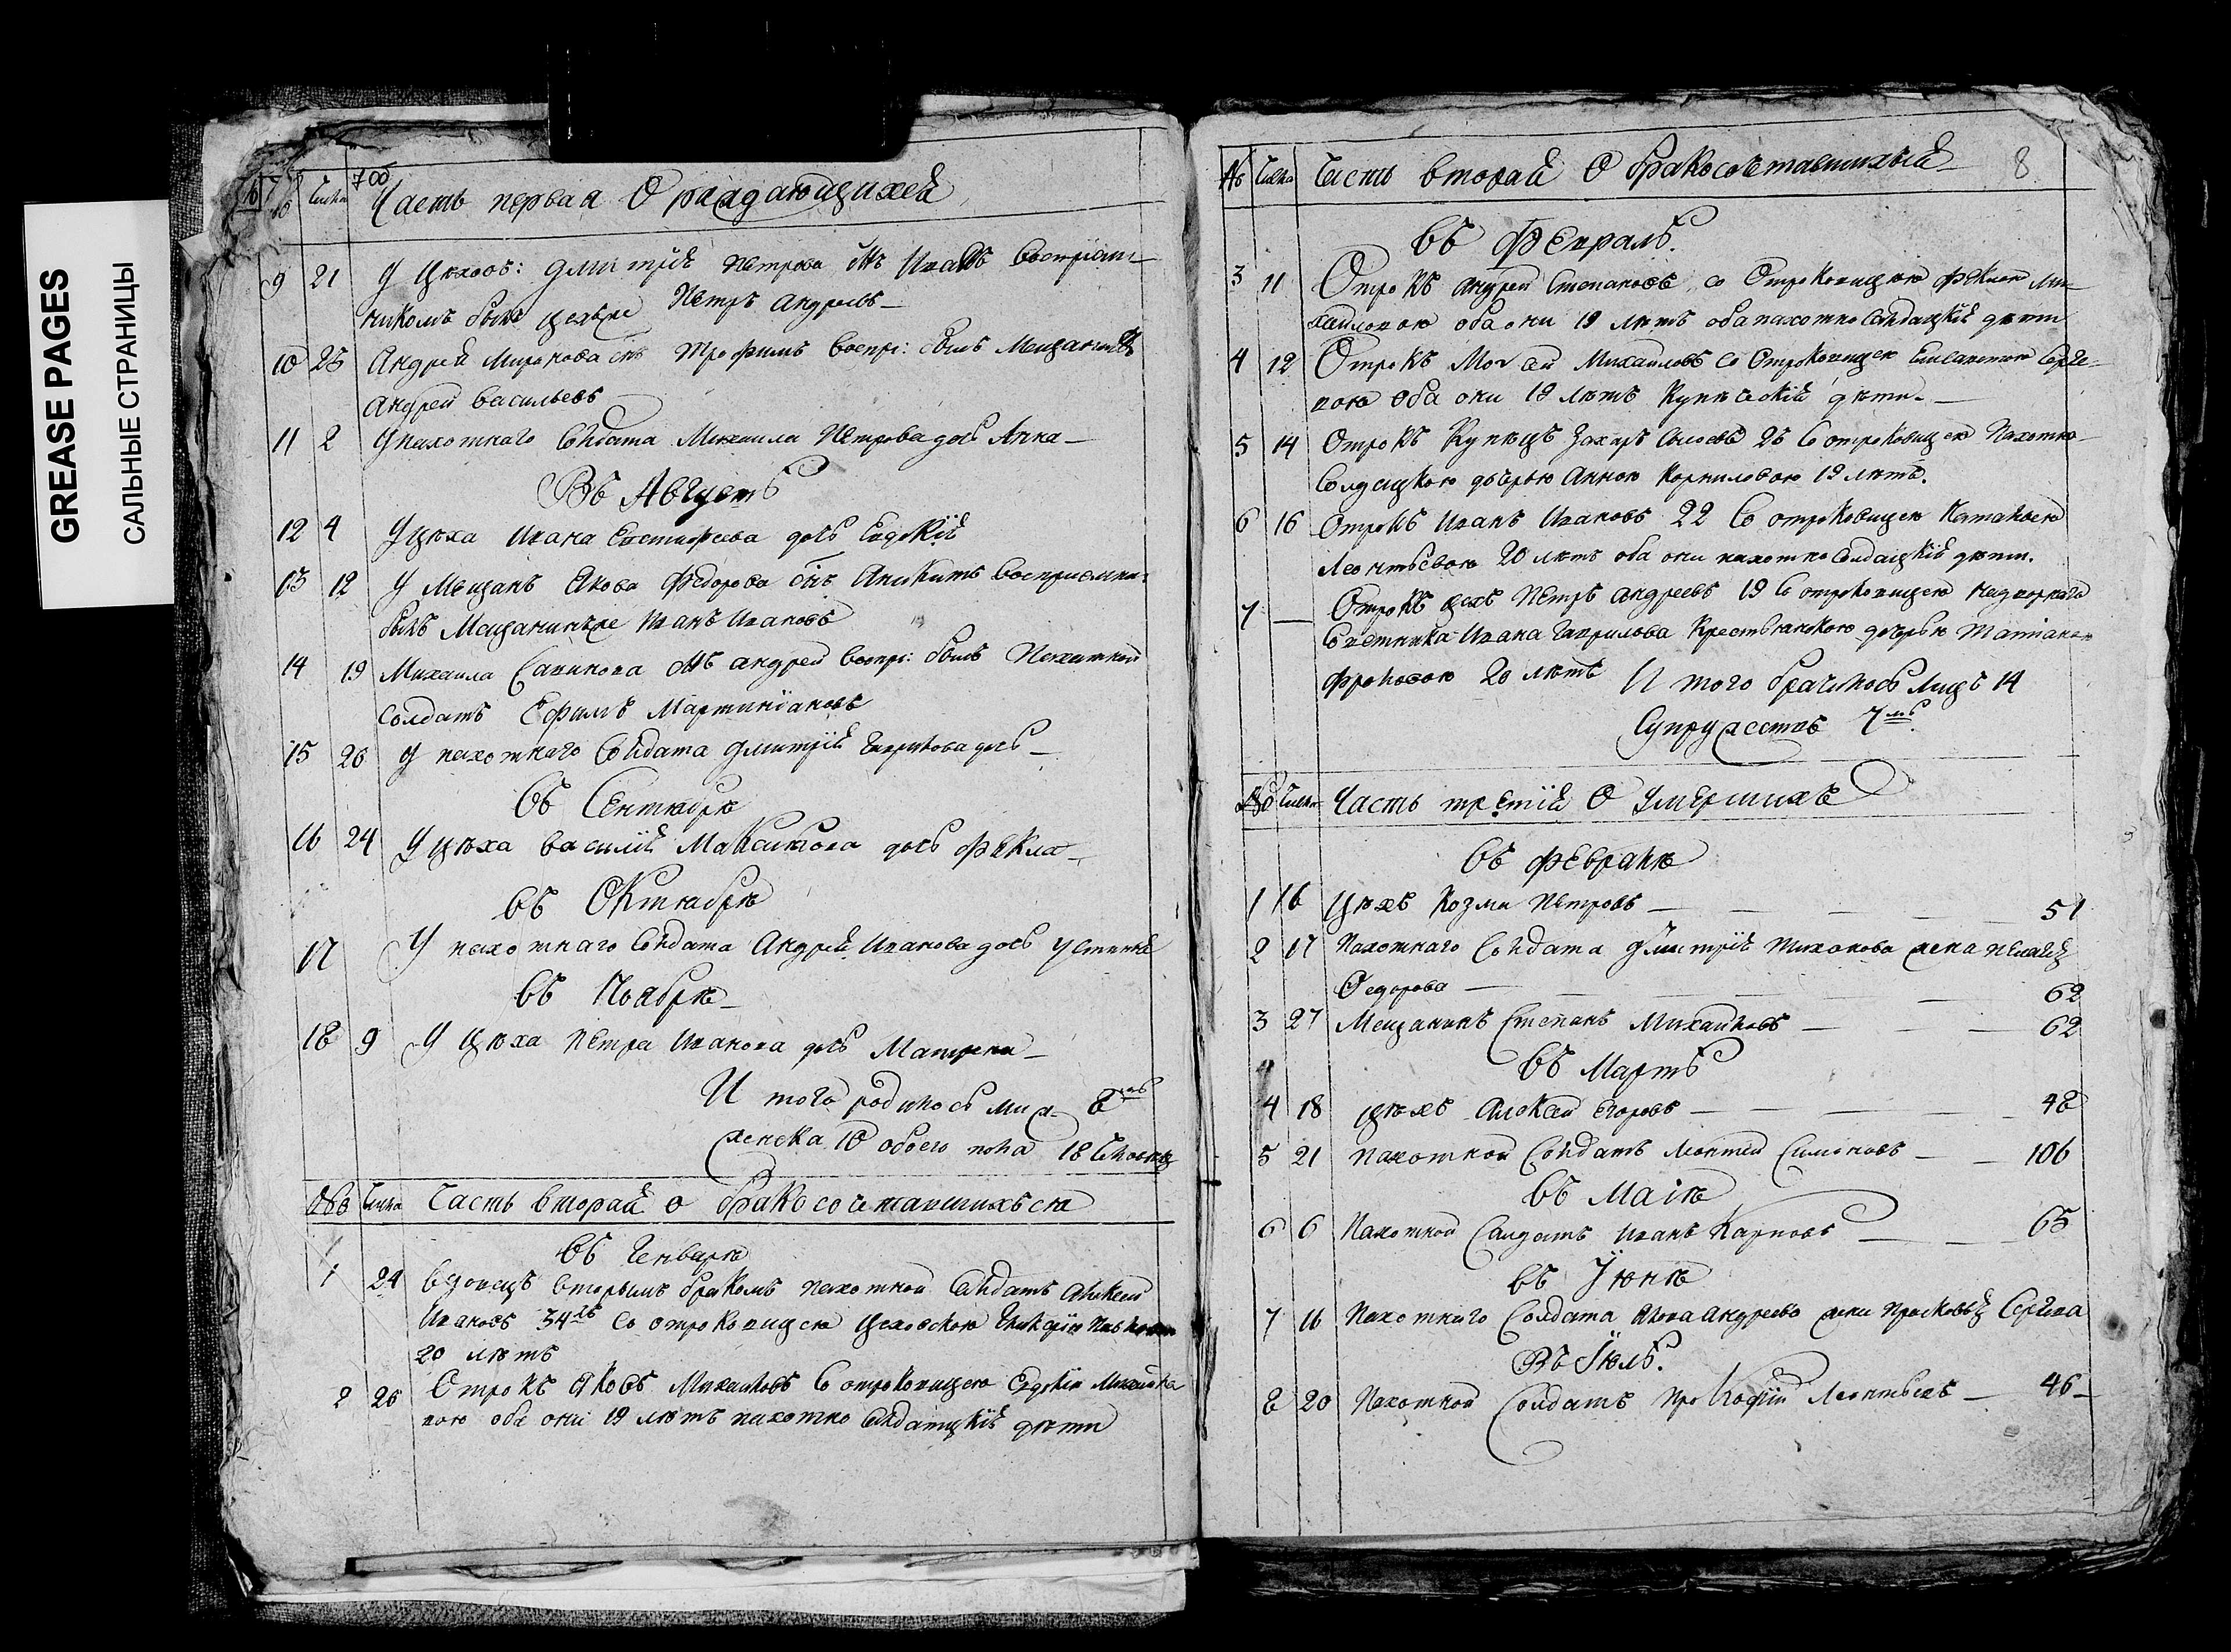 GREASE PAGES
САЛЬНЫЕ СТРАНИЦЫ
7 об
№ Числа Часть первая О раждающихся
9 21 У цехов: Дмитрія Петрова снъ Иванъ восприем-
никомъ былъ цехъ же Петръ Андреевъ
10 25 Андрея Миронова снъ Трофимъ воспрі: былъ Мещанинъ
Андрей Васильевъ
11 2 У пахотнаго солдата Михаила Петрова дочь Анна
Въ Августѣ
12 4 У цеха Ивана Евстифеева дочь Евдокія
13 12 У Мещанъ Якова Федорова снъ Аникита восприемни:
былъ Мещанинъ же Иванъ Ивановъ
14 19 Михаила Савинова снъ Андрей воспрі: былъ Пахатной
солдатъ Ефимъ Мартиніановъ
15 26 У пахотнаго солдата Дмитрія Гаврилова дочь
въ Сентябрѣ
16 24 У цеха Василія Максимова дочь Фекла
въ Октябрѣ
17 У пахотнаго солдата Андрея Иванова дочь Устинья
въ Ноябрѣ
18 9 У цеха Петра Иванова дочь Матрена
И того родилось муж. 8
женска 10 обоего пола 18 человек
№ Числа Часть вторая о бракосочетавшихъся
въ Генварѣ
1 24 Вдовецъ вторымъ бракомъ пахотной солдатъ Алексей
Ивановъ 34 со отроковицею цеховскою
20 лѣтъ
2 26 Отрокъ Яковъ Михайловъ со отроковицею Евдокіею Михайло
вою оба они 19 лѣтъ пахотно солдатскія дѣти
№ Числа Часть вторая О бракосочетавшихъся 8
въ Февралѣ
3 11 Отрокъ Андрей Степановъ со Отроковицею Феклою Ми-
хайловою оба они 19 лѣтъ оба пахотно солдатскія дѣти
4 12 Отрокъ Моисей Михайловъ со Отроковицею Елисаветою Серге-
вою оба они 19 лѣтъ Купеческія дѣти
5 14 Отрокъ Купецъ Захаръ Сысоевъ 25 со отроковицею Пахотно-
солдацкою дочерью Анною Корниловою 19 лѣтъ.
6 16 Отрокъ Иванъ Ивановъ 22 со отроковицею Натальею
Леонтьевою 20 лѣтъ оба они пахотно солдацкія дѣти.
7 — Отрокъ цехъ Петръ Андреевъ 19 со отроковицею надворнаго
Советника Ивана Гаврилова крестьянскою дочерью Татіаною
Фроловою 20 лѣтъ И того брачилось лицъ 14
Супружествъ 7
№ Числа Часть третія О умершихъ
въ Февралѣ
1 16 Цехъ Козма Петровъ 51
2 17 Пахотнаго солдата Дмитрія Тихонова жена Пелагея
Федорова 62
3 27 Мещанинъ Степанъ Михайловъ 62
въ Мартѣ
4 18 цехъ Алексей Егоровъ 48
5 21 Пахотной солдатъ Леонтей Симоновъ 106
въ Маіѣ
6 6 Пахотной Салдатъ Иванъ Карповъ 65
въ Іюнѣ
7 16 Пахотнаго Солдата Якова Андреева жена Прасковья Сергева
Въ Іюлѣ.
8 20 Пахотной Солдатъ Прокофій Леонтьевъ 46